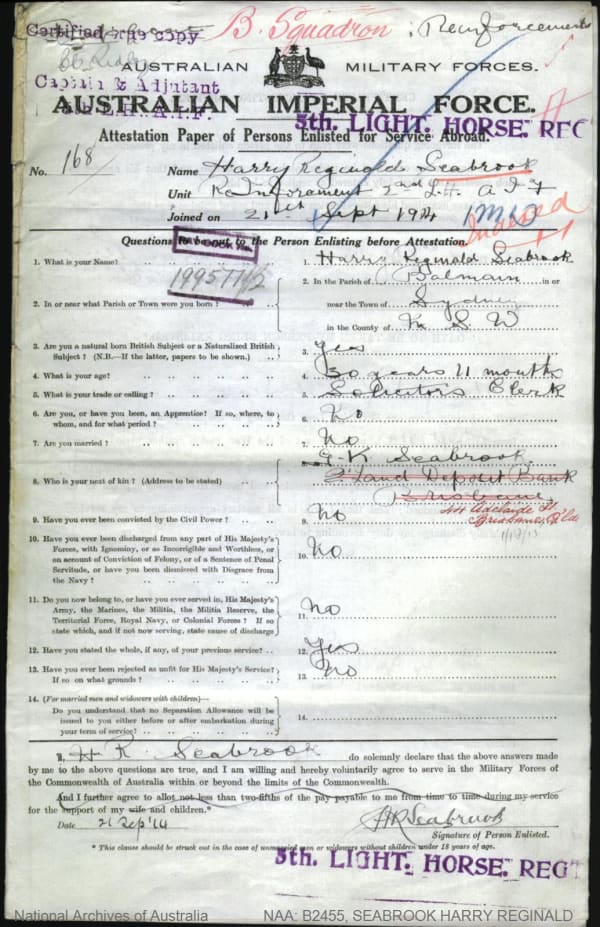 Certified true copy
B. Squadron : Reinforcements
Captain & Adjutant
AUSTRALIAN MILITARY FORCES.
AUSTRALIAN IMPERIAL FORCE.
5th. LIGHT. HORSE. REG
Attestation Paper of Persons Enlisted for Service Abroad.
No. 168 Name Harry Reginald Seabrook
Unit Reinforcement 2nd L.H. A I F
Joined on 21st Sept 1914
Indexed
Questions to be put to the Person Enlisting before Attestation.
1. What is your Name? 1. Harry Reginald Seabrook
2. In or near what Parish or Town were you born? 2. In the Parish of Balmain in or
near the Town of Sydney
in the County of N S W
3. Are you a natural born British Subject or a Naturalized British Subject? (N.B.—If the latter, papers to be shown.) 3. Yes
4. What is your age? 4. 30 years 11 months
5. What is your trade or calling? 5. Solicitors Clerk
6. Are you, or have you been, an Apprentice? If so, where, to whom, and for what period? 6. No
7. Are you married? 7. No
8. Who is your next of kin? (Address to be stated) 8. Seabrook
Q'land Deposit Bank
Brisbane
44 Adelaide St
Brisbane, Q'ld
9. Have you ever been convicted by the Civil Power? 9. No
10. Have you ever been discharged from any part of His Majesty's Forces, with Ignominy, or as Incorrigible and Worthless, or on account of Conviction of Felony, or of a Sentence of Penal Servitude, or have you been dismissed with Disgrace from the Navy? 10. No
11. Do you now belong to, or have you ever served in, His Majesty's Army, the Marines, the Militia, the Militia Reserve, the Territorial Force, Royal Navy, or Colonial Forces? If so state which, and if not now serving, state cause of discharge 11. No
12. Have you stated the whole, if any, of your previous service? 12. Yes
13. Have you ever been rejected as unfit for His Majesty's Service? If so on what grounds? 13. No
14. (For married men and widowers with children)—
Do you understand that no Separation Allowance will be issued to you either before or after embarkation during your term of service? 14.
I, H R. Seabrook do solemnly declare that the above answers made
by me to the above questions are true, and I am willing and hereby voluntarily agree to serve in the Military Forces of
the Commonwealth of Australia within or beyond the limits of the Commonwealth.
And I further agree to allot not less than two-fifths of the pay payable to me from time to time during my service
for the support of my wife and children.*
Date 21 Sep' 14 HRSeabrook
Signature of Person Enlisted.
* This clause should be struck out in the case of unmarried men or widowers without children under 18 years of age.
5th. LIGHT. HORSE. REGT
National Archives of Australia NAA: B2455, SEABROOK HARRY REGINALD